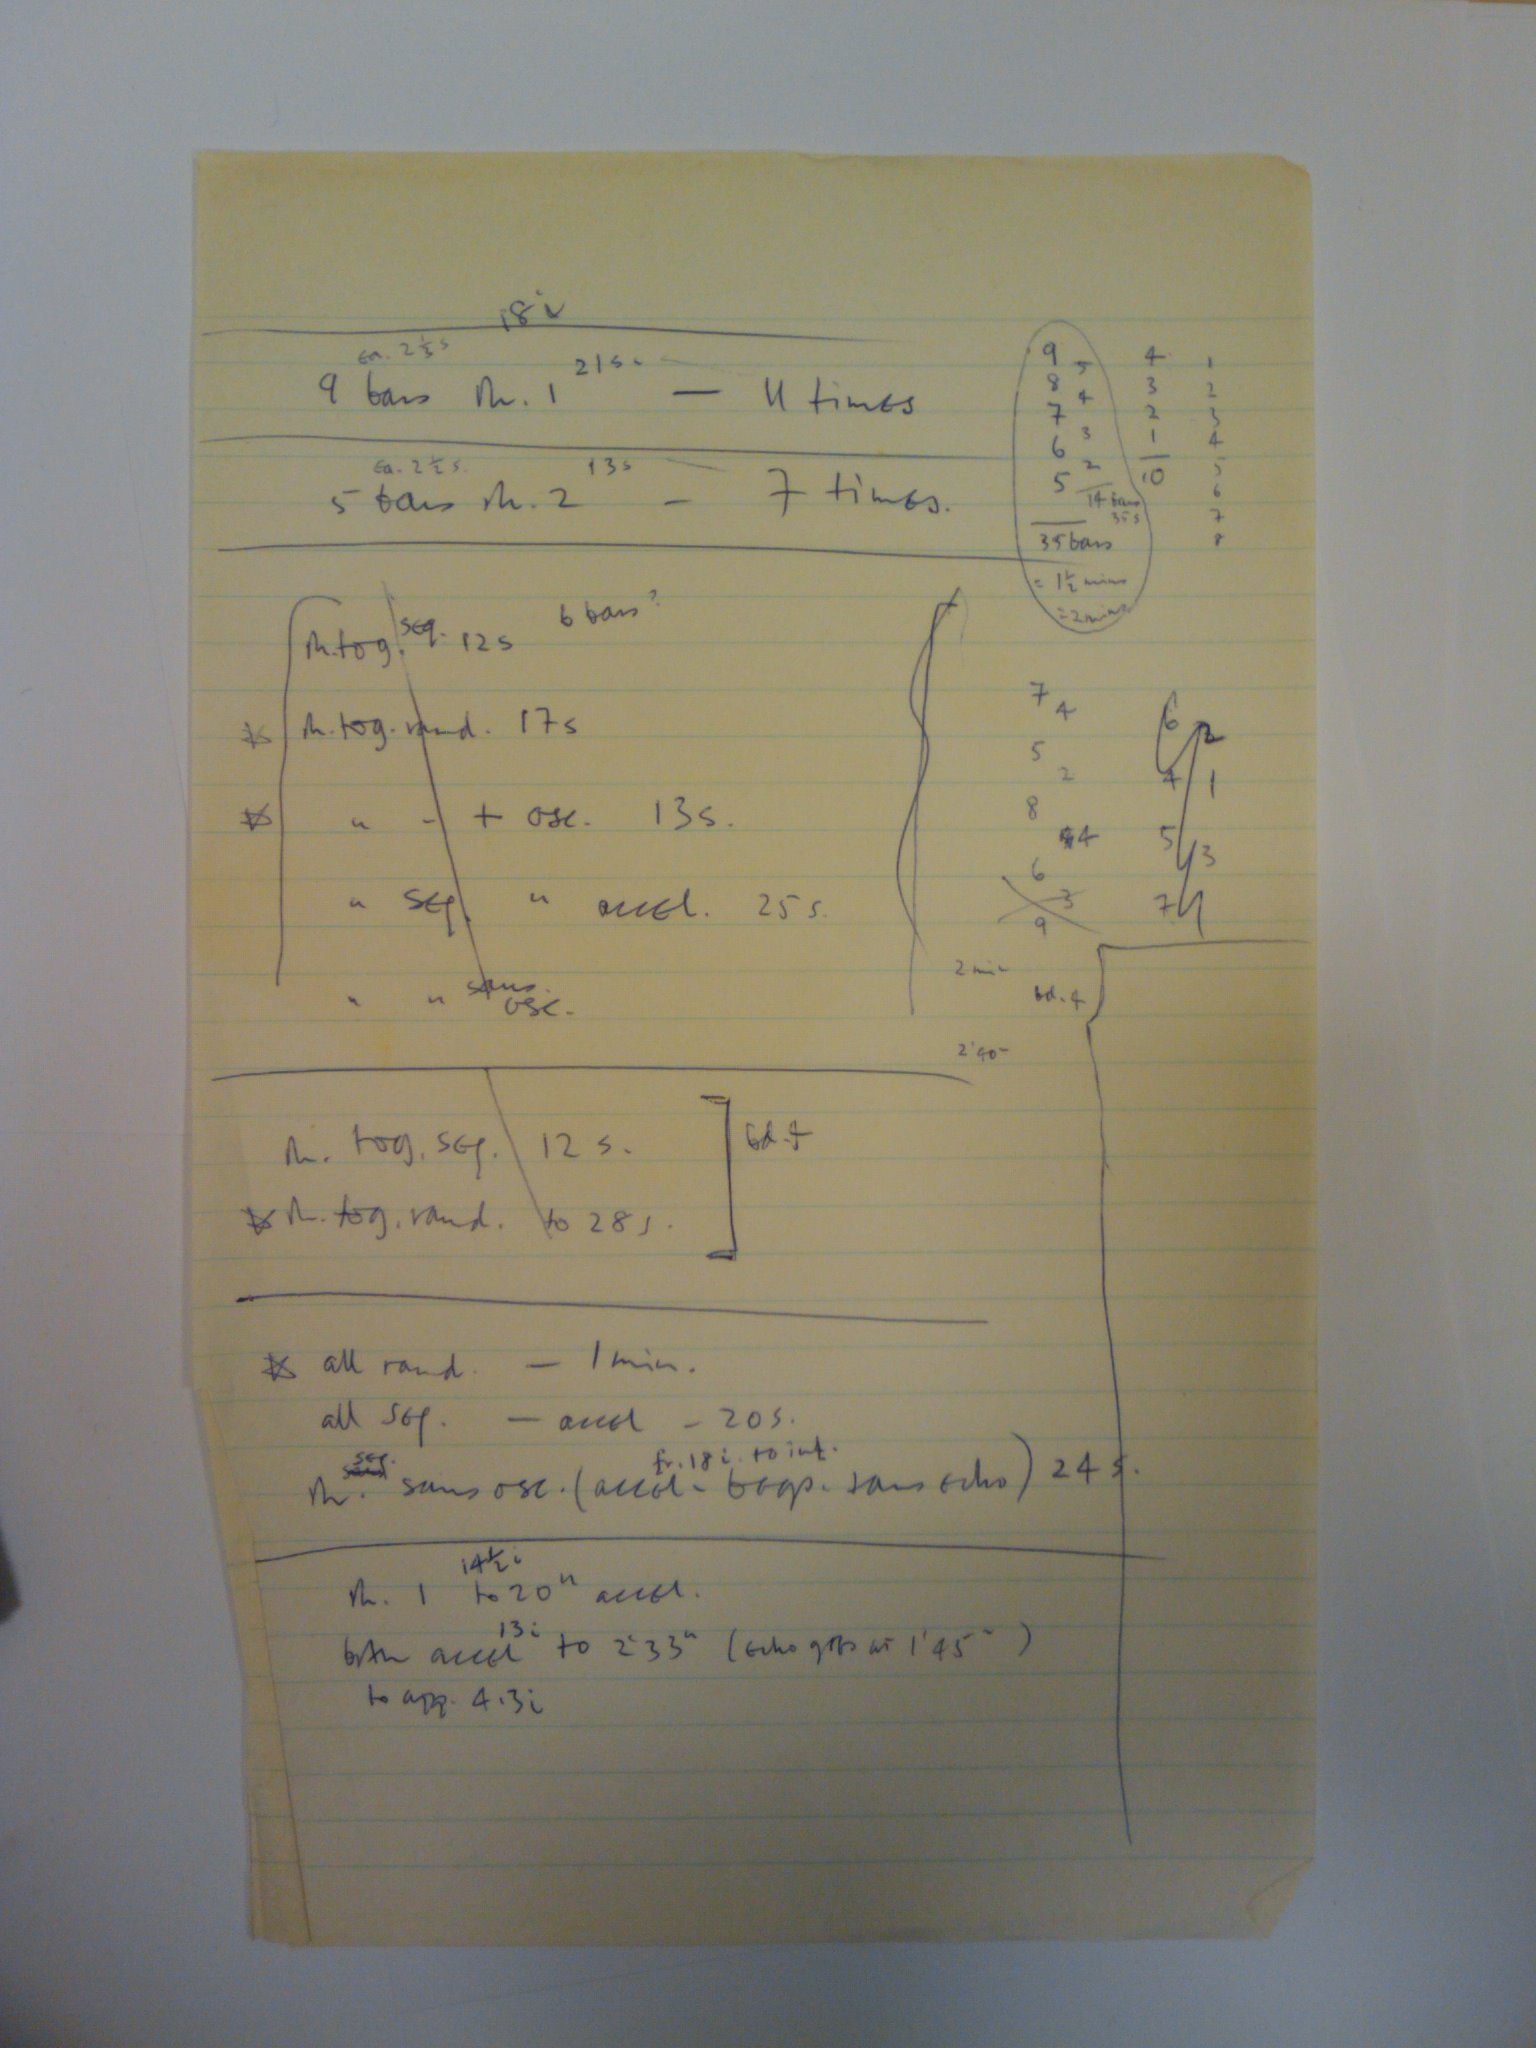 18i
ea. 2 1/3 s
9 bars rh. 1 21s. — 11 times
ea. 2 1/2 s. 13s
5 bars rh. 2 — 7 times.
rh. tog. seq. 12s 6 bars?
rh. tog. rand. 17s
" " + osc. 13s.
" seq. " accel. 25s.
" " sans osc.
rh. tog. seq. 12s.
rh. tog. rand. to 28s.
all rand. — 1 min.
all seq. — accel – 20s.
seq. fr. 18i. to inf.
rh. sans osc. (accel – sans echo) 24s.
14 1/2 i
rh. 1 to 20" accel.
13i
both accel to 2'33" (echo goes at 1'45")
to app. 4.3i
9 5 4 1
8 4 3 2
7 3 2 3
6 2 1 4
5 10 5
14 bars 6
35s 7
35 bars 8
= 1 1/2 mins
= 2 mins
7 4
5 2
8
4
6 3
9
6 2
4 1
5 3
7
2 min
2'40"